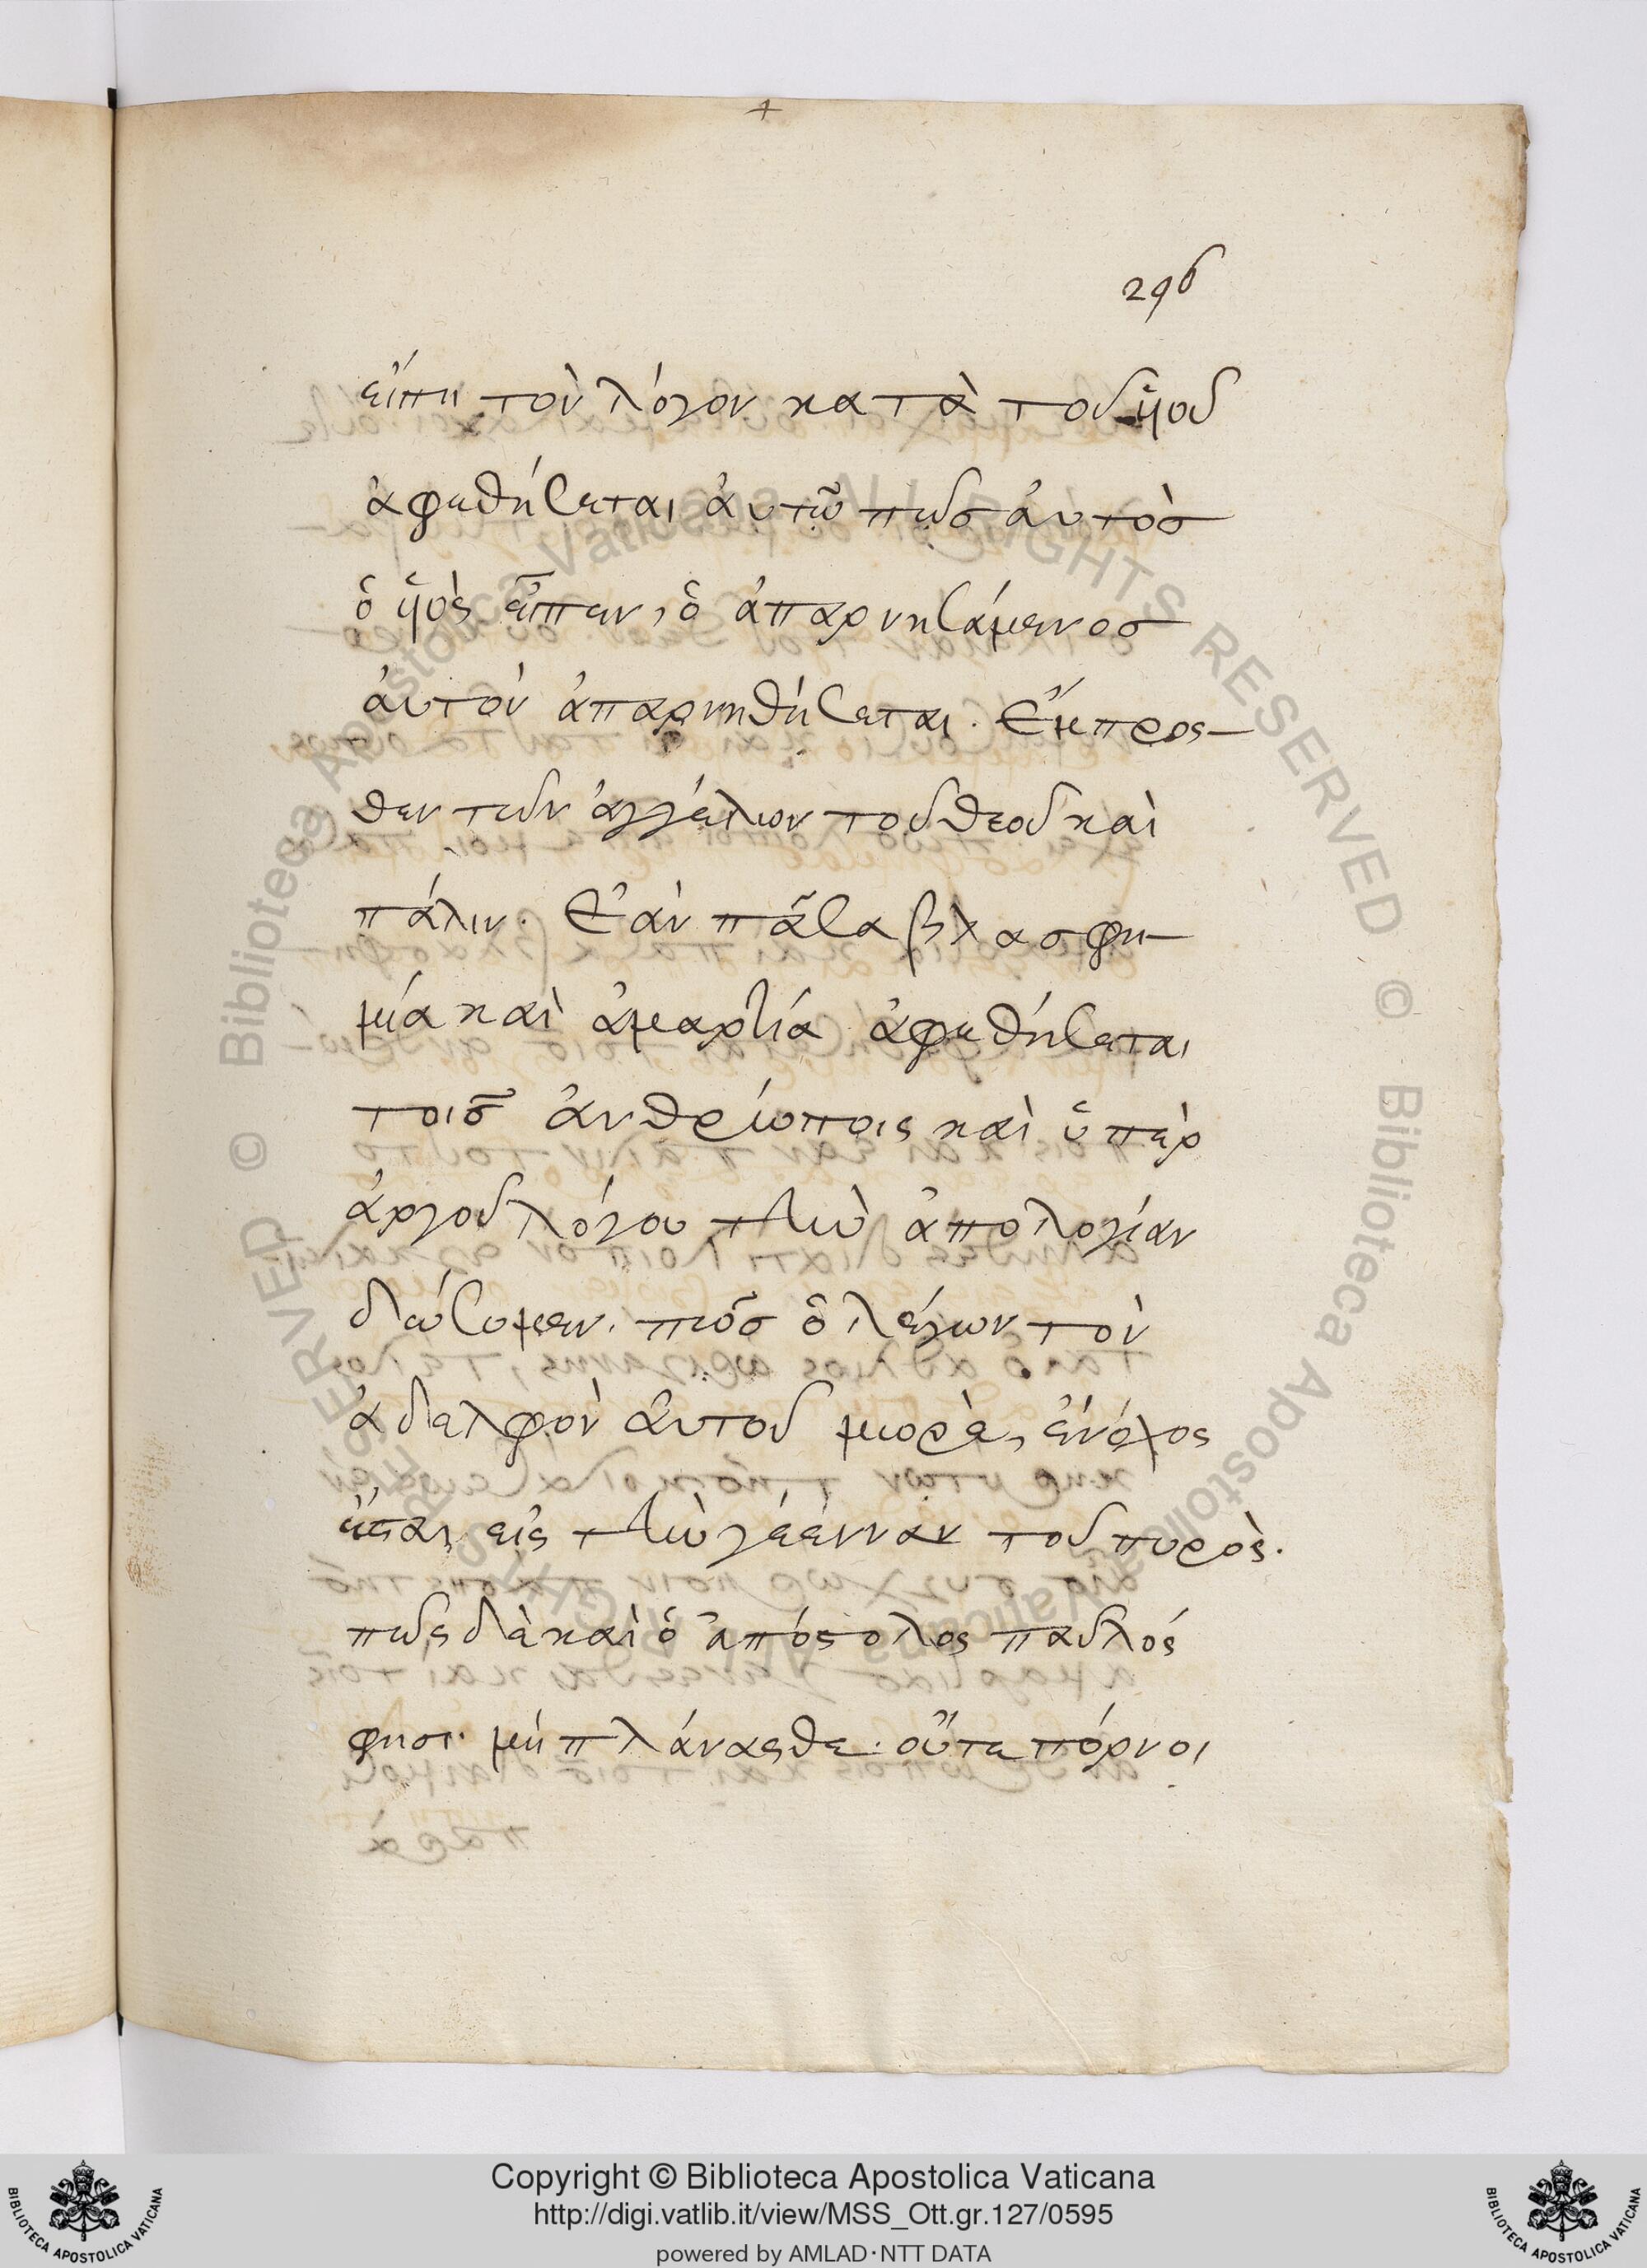 296
εἴπη τὸν λόγον κατὰ τοῦ ὑιοῦ
ἀφεθήσεται ἀυτῶ πῶσ ἀυτὸσ
ὁ ὑιὸς εἶπεν, ὁ ἀπαρνησάμενοσ
ἀυτὸν ἀπαρνηθήσεται. Ἔμπροσ-
θεν τῶν ἀγγέλων τοῦ θεοῦ καὶ
πάλιν. Ἐὰν πᾶσα βλασφη-
μία καὶ ἁμαρτία ἀφεθήσεται
τοῖσ ἀνθρώποις καὶ ὑπὲρ
ἀργοῦ λόγου τὴν ἀπολογίαν
δώσομεν. πῶσ ὁ λέγων τὸν
ἀδελφὸν ἀυτοῦ μωρὲ, ἔνοχος
ἔσται εἰς τὴν γέενναν τοῦ πυρὸς.
πῶς δὲ καὶ ὁ ἀπόστολος παῦλός
φησι. μὴ πλάνασθε. οὔτε πόρνοι
Copyright © Biblioteca Apostolica Vaticana
http://digi.vatlib.it/view/MSS_Ott.gr.127/0595
powered by AMLAD·NTT DATA
BIBLIOTECA APOSTOLICA VATICANA
BIBLIOTECA APOSTOLICA VATICANA
© Biblioteca Apostolica Vaticana ALL RIGHTS RESERVED
© Biblioteca Apostolica Vaticana ALL RIGHTS RESERVED